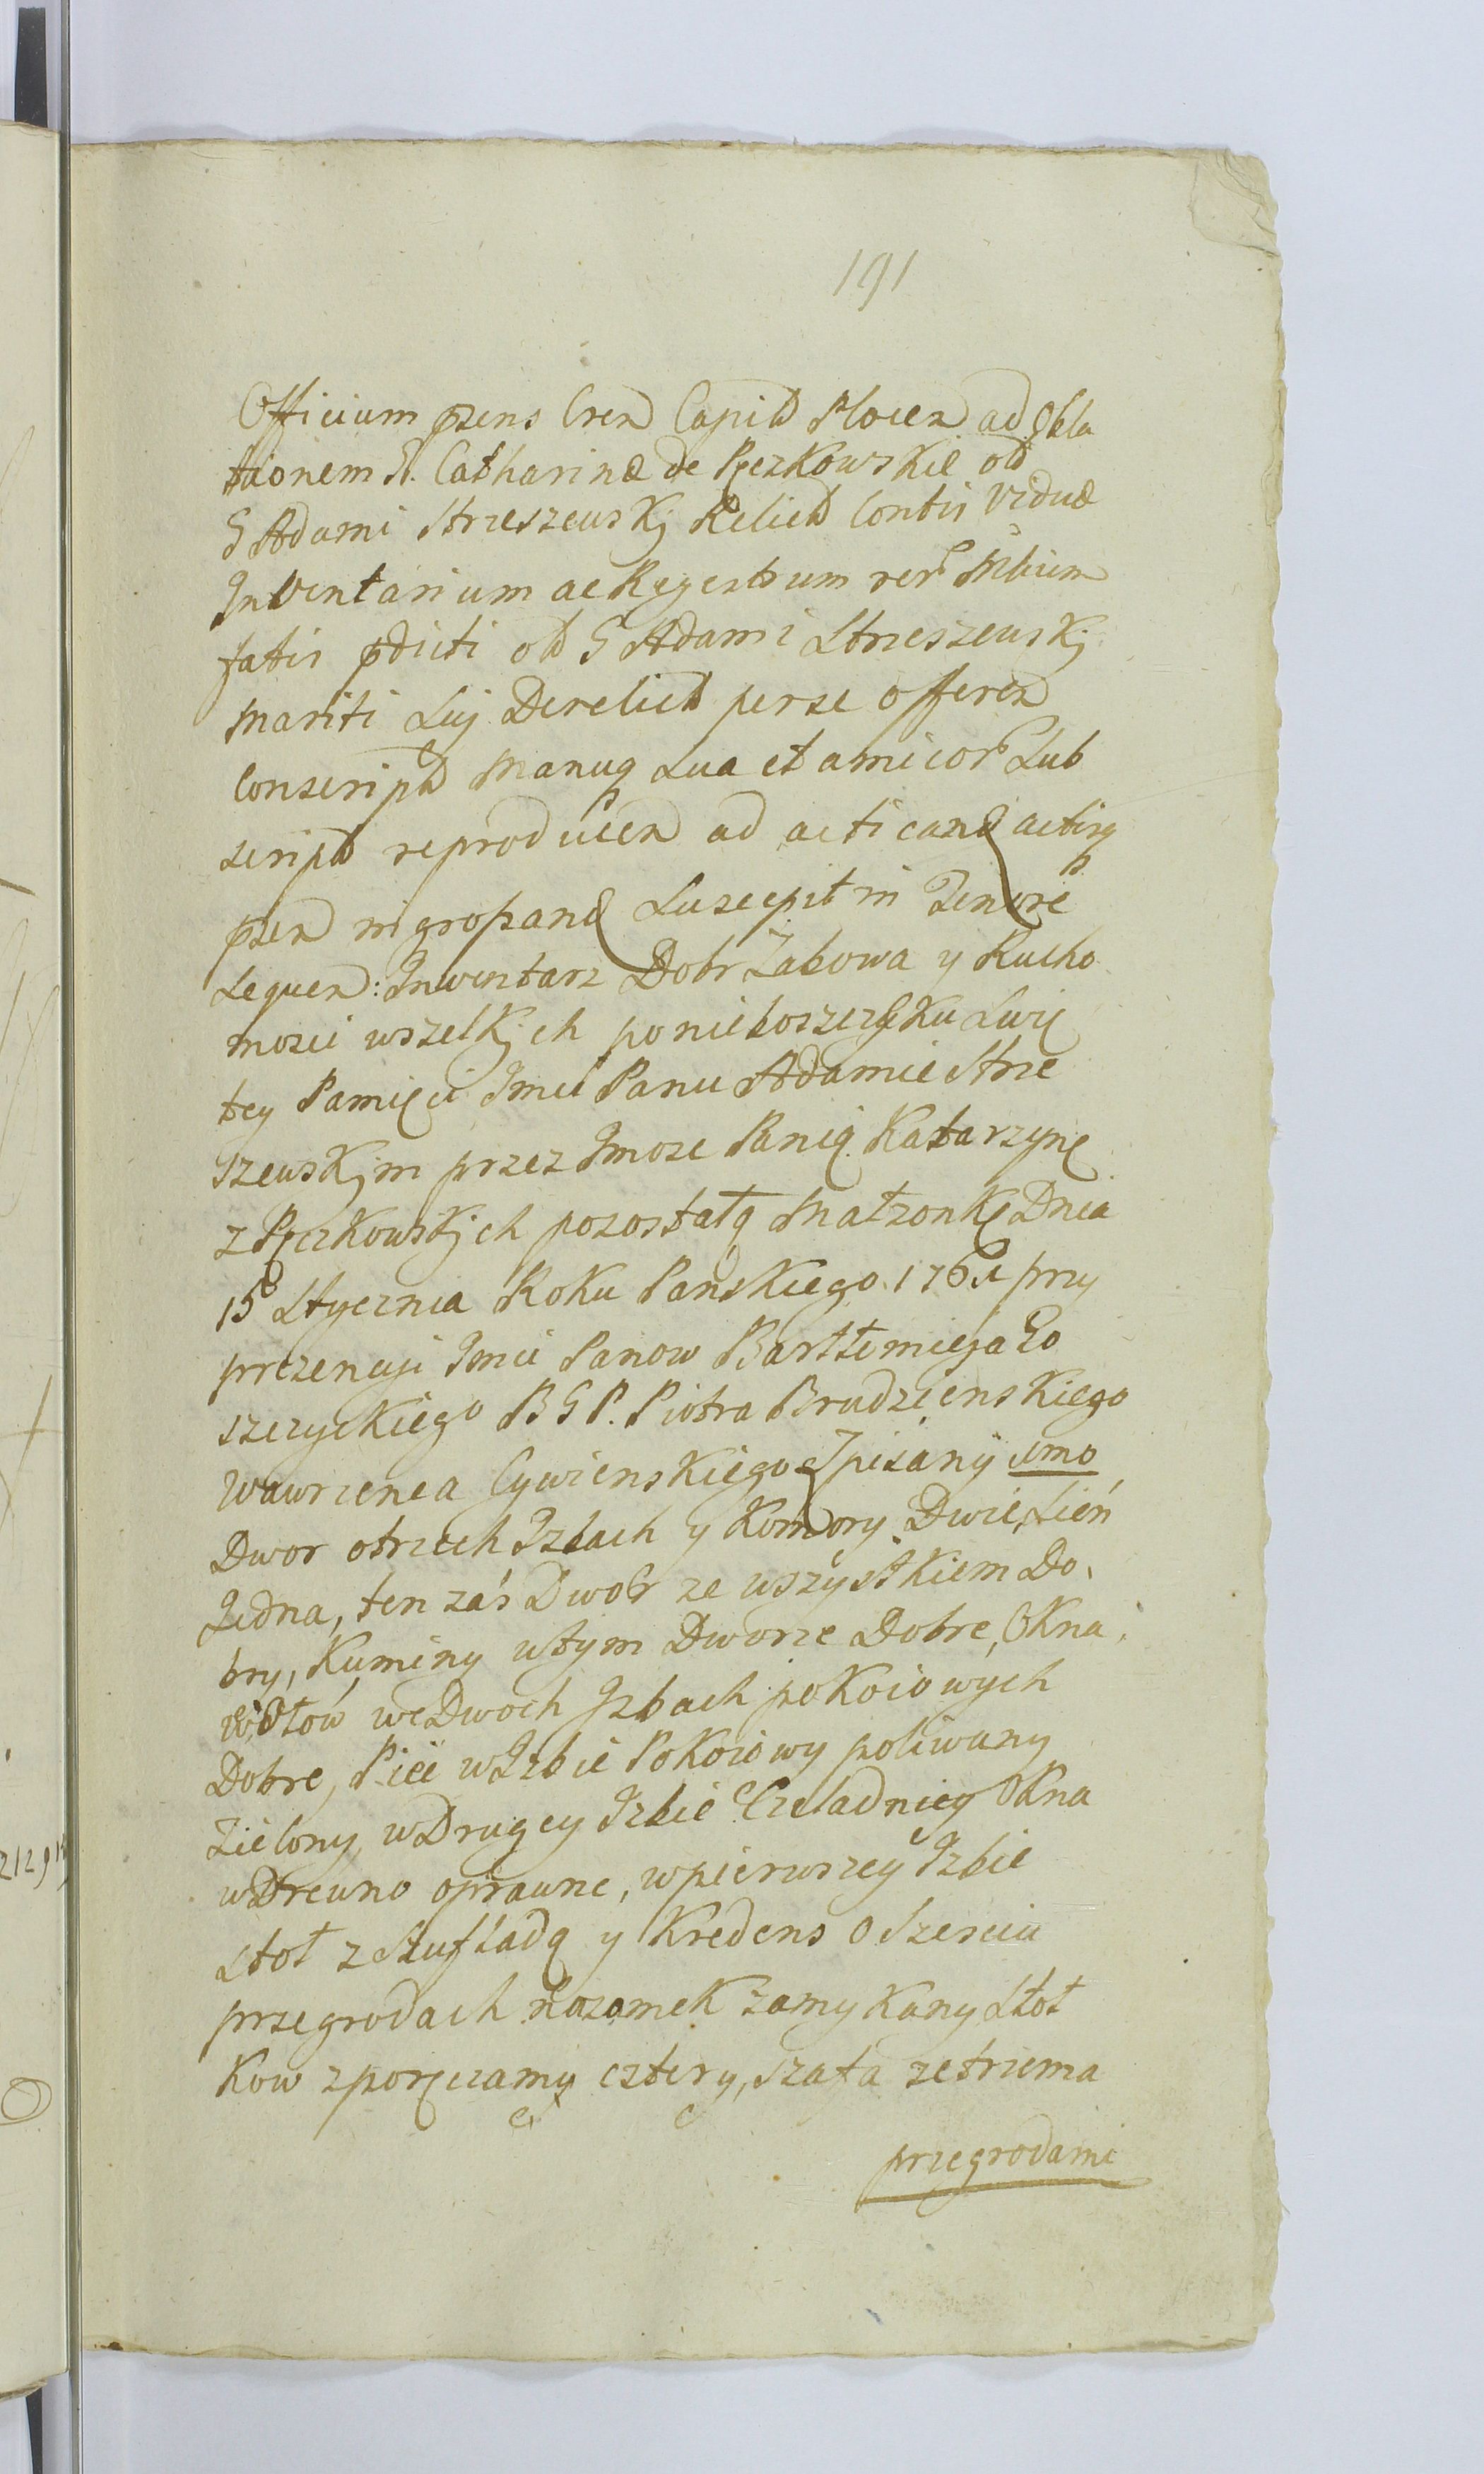 191
Officium pzens Cren Capitd Plocen ad Obla
tionem G. Catharinæ de Pęczkowskie od
G Adami Strzeszewskj Relictd Contis Viduæ
Inventarium ac Regestrum rer Mbium
fatis pdicti od G Adami Strzeszewskj
Mariti Suj Derelictd perse offeren
Conscriptd Manuq Sua et amicor Sub
scriptd reproducen ad acticand actisq
pzen ingrossand Suscepit in Tenore
Sequen: Inwentarz Dobr Żabowa y Rucho
mosci wszelkjch ponieboszczyku Swię
tey Pamięci Jmci Panu Adamie Strze
szewskjm przez Jmosc Panią Katarzynę
z Pęczkowskjch pozostałą Małzonkę Dnia
15 Stycznia Roku Panskiego 176 przy
prezencyi Jmci Panow Bartłomieja Go
szczyckiego B G P. Piotra Brudzienskiego
Wawrzenca Cywienskiego Spisany imo
Dwor otrzech Jzbach y Komory Dwie, Sień
Jedna, ten zaś Dwor ze wszystkiem Do,
bry, Kuminy wtym Dworze Dobre, Okna,
weDwoch Jzbach pokoiowych
Dobre, Piec wJzbie Pokoiowy poliwany
Zielony, wDrugey Jzbie Czeladniey Okna
wDrewno oprawne, wpierwszey Jzbie
Stoł zSzufladą y Kredens oSzesciu
przegrodach nazamek zamykany Stoł
kow zporęczamy cztery, Szafa zetrzema
przegrodami